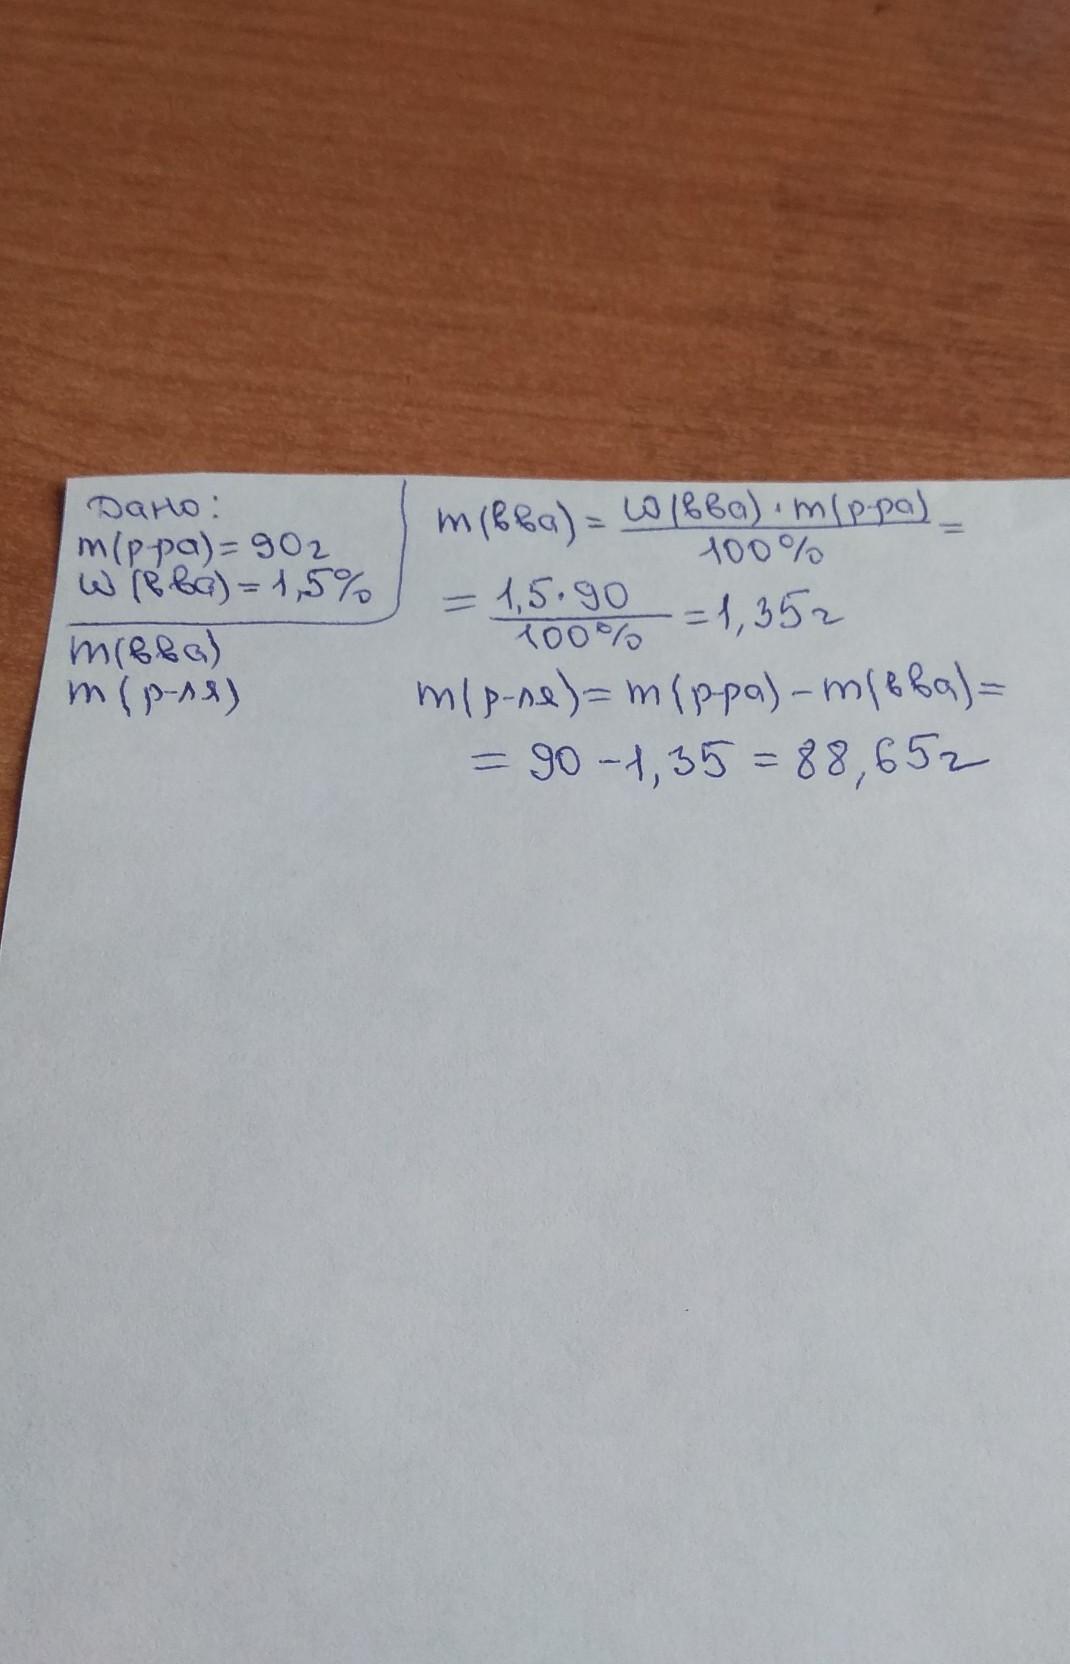 Дано:
m(р-ра) = 90г
ω(в-ва) = 1,5%
m(в-ва)
m(р-ля)
m(в-ва) = ω(в-ва) · m(р-ра) / 100% =
= 1,5 · 90 / 100% = 1,35г
m(р-ля) = m(р-ра) – m(в-ва) =
= 90 – 1,35 = 88,65г